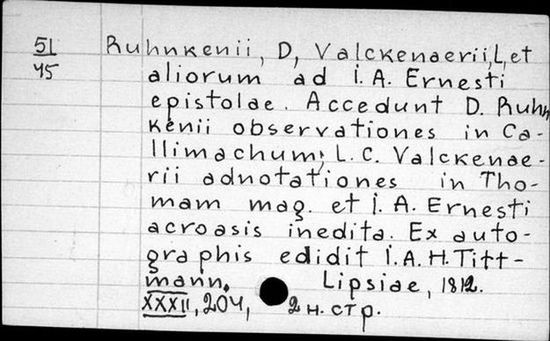 51 Ruhnkenii, D, Valckenaerii, L, et
45 aliorum ad I. A. Ernesti
epistolae. Accedunt D. Ruhn
kenii observationes in Ca-
llimachum; L. C. Valckenae-
rii adnotationes in Tho-
mam mag. et I. A. Ernesti
acroasis inedita. Ex auto-
graphis edidit I. A. H. Titt-
mann. Lipsiae, 1812.
XXXII, 204, 2 н. стр.